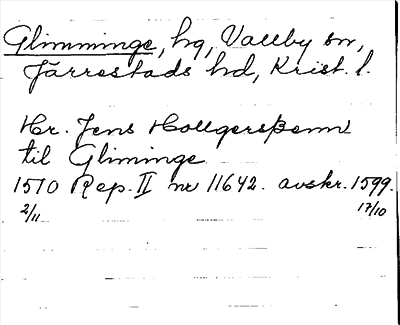 Glimminge, hg, Vallby sn,
Järrestads hd, Krist. l.
Hr. Jens Hollgerssenn
til Gliminge
1510 Rep. II nr 11642. avskr. 1599.
2/11 17/10